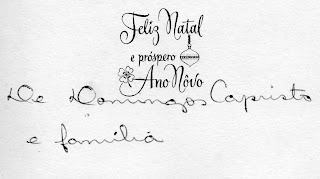 Feliz Natal
e próspero
Ano Nôvo
De Domingos Capristo
e familiá